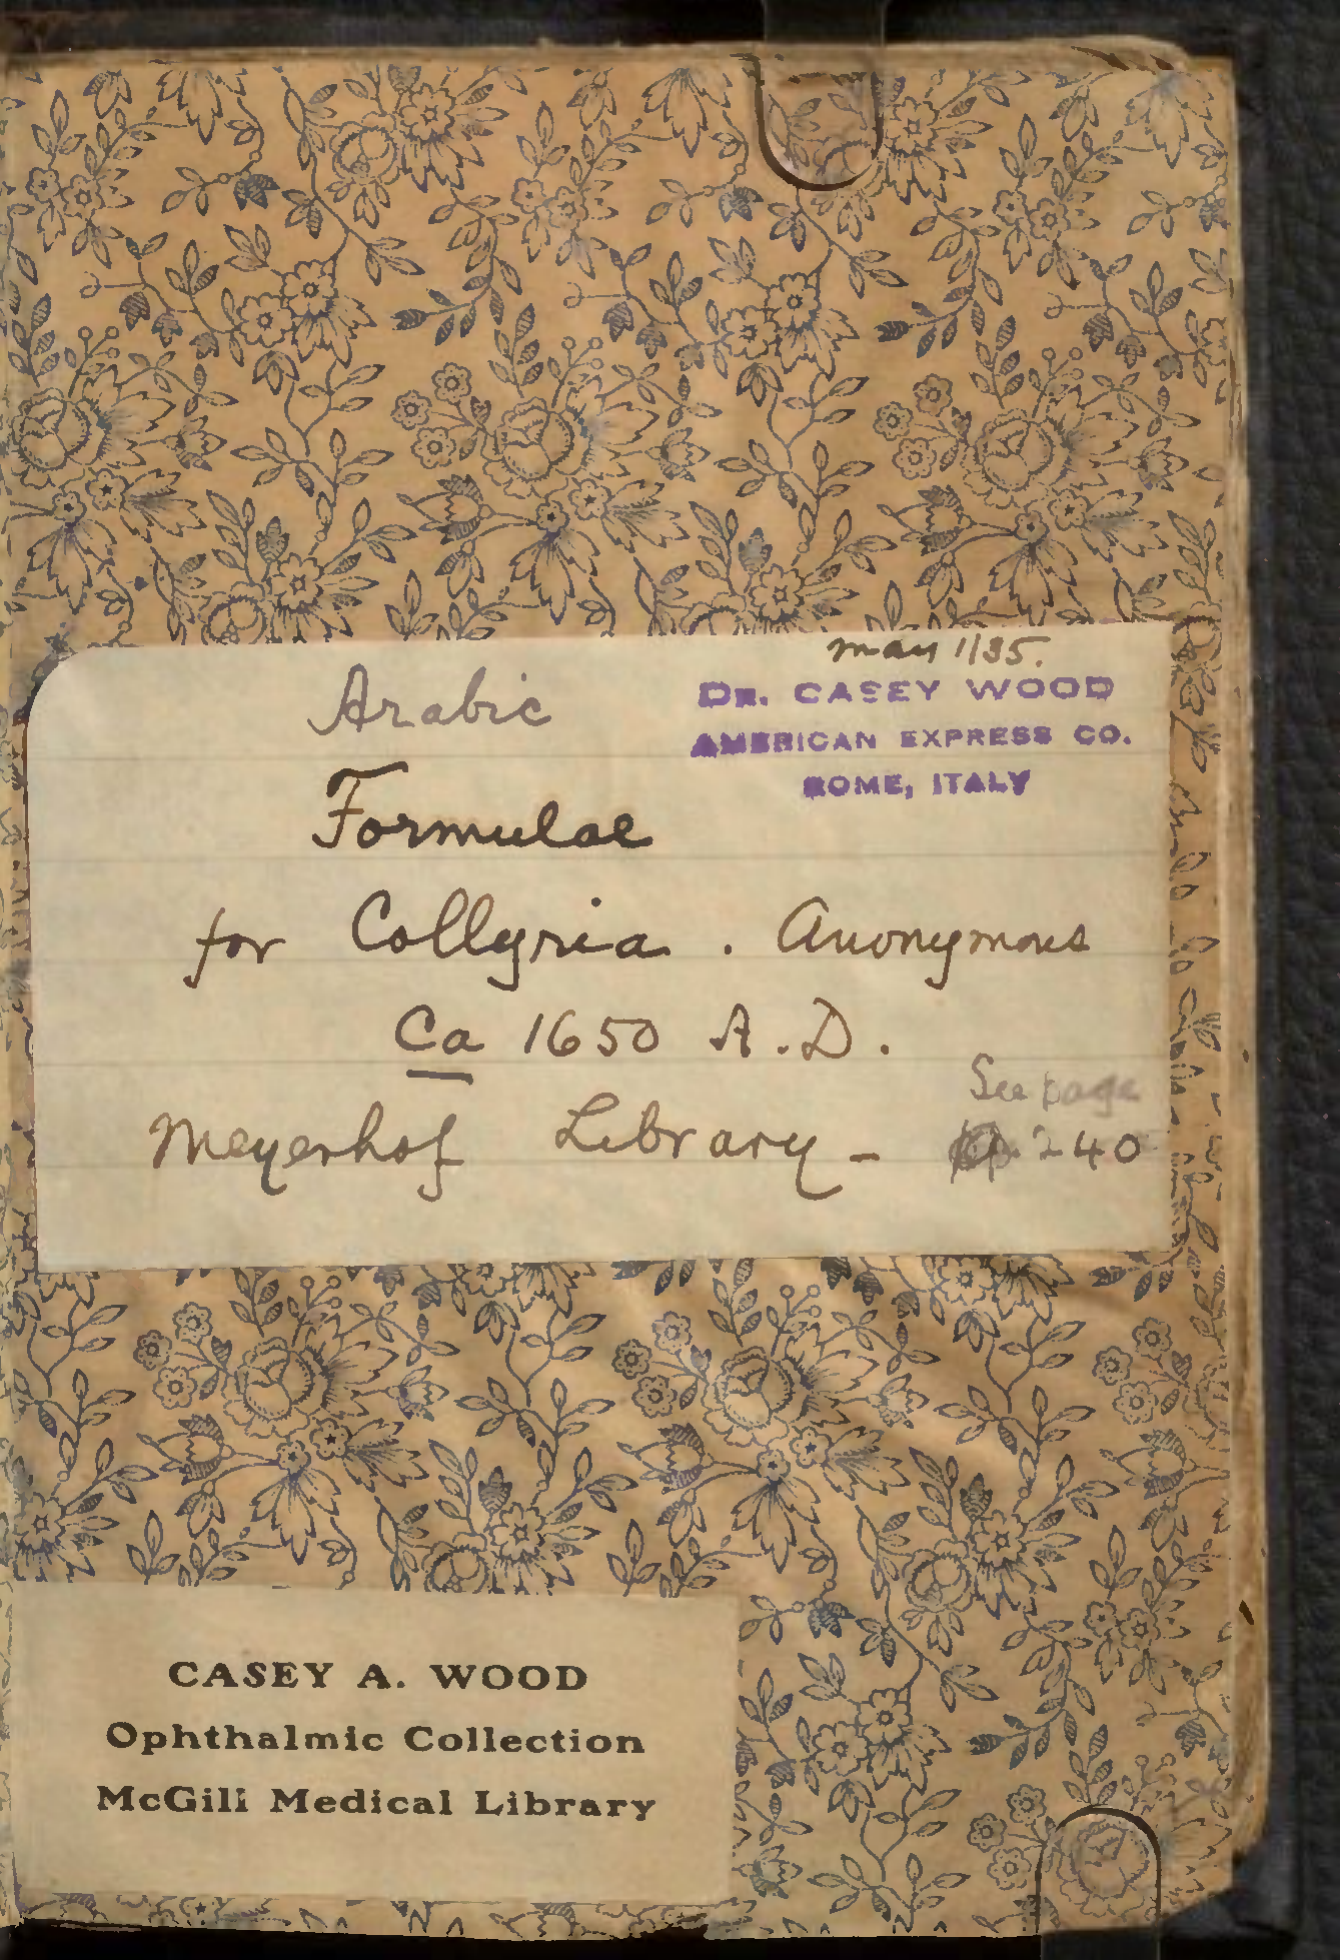 may 1/35.
Arabic
DR. CASEY WOOD
AMERICAN EXPRESS CO.
ROME, ITALY
Formulae
for Collyria. Anonymous
Ca 1650 A.D.
See page
Meyerhof Library - 240
CASEY A. WOOD
Ophthalmic Collection
McGill Medical Library